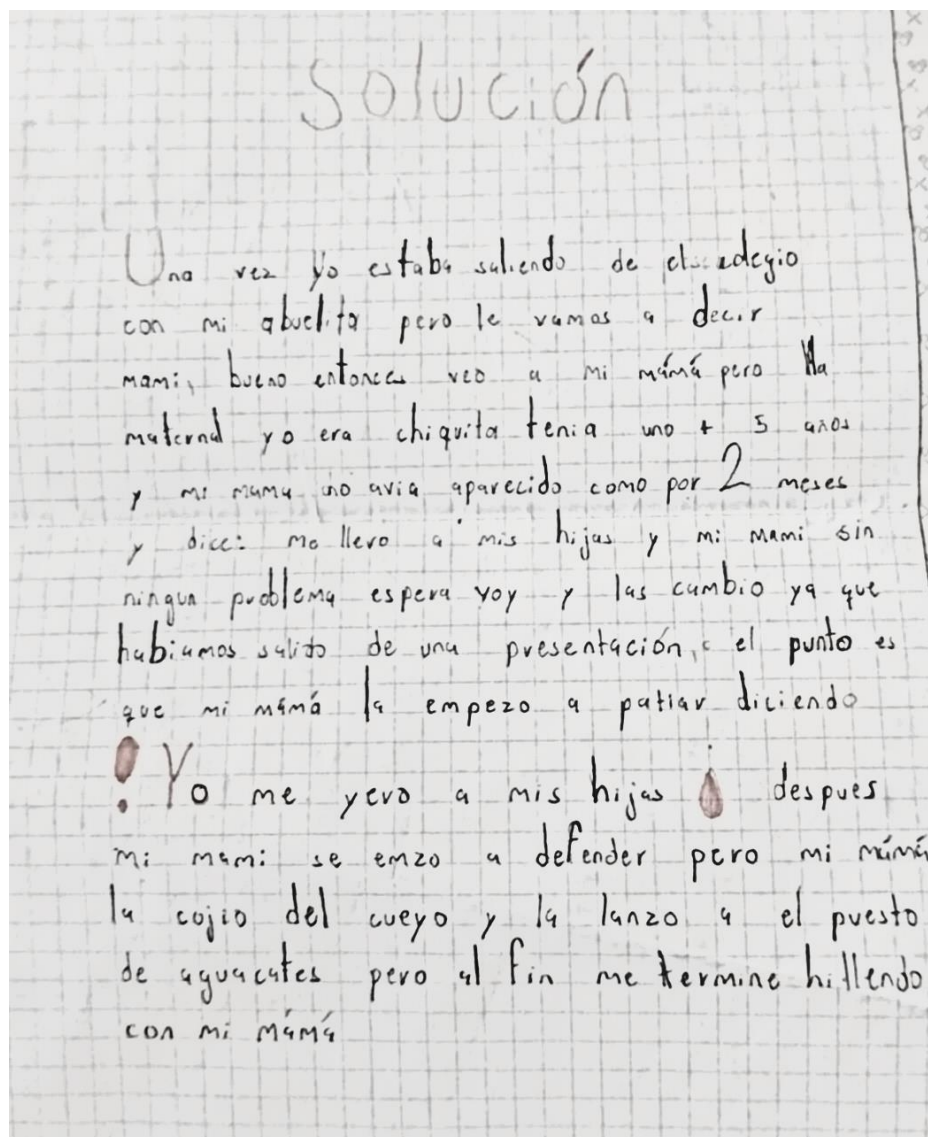 Solución
Una vez yo estaba saliendo de
con mi abuelita pero le vamos a decir
mami, bueno entonces veo a mi mámá pero la
maternal yo era chiquita tenia uno + 5 años
y mi mama no avia aparecido como por 2 meses
y dice: me llevo a mis hijas y mi mami sin
ningun problema espera voy y las cambio ya que
habiamos salido de una presentación, el punto es
que mi mámá la empezo a patiar diciendo
! Yo me yevo a mis hijas ¡ despues
mi mami se emzo a defender pero mi mámá
la cojio del cueyo y la lanzo a el puesto
de aguacates pero al fin me termine hillendo
con mi mámá